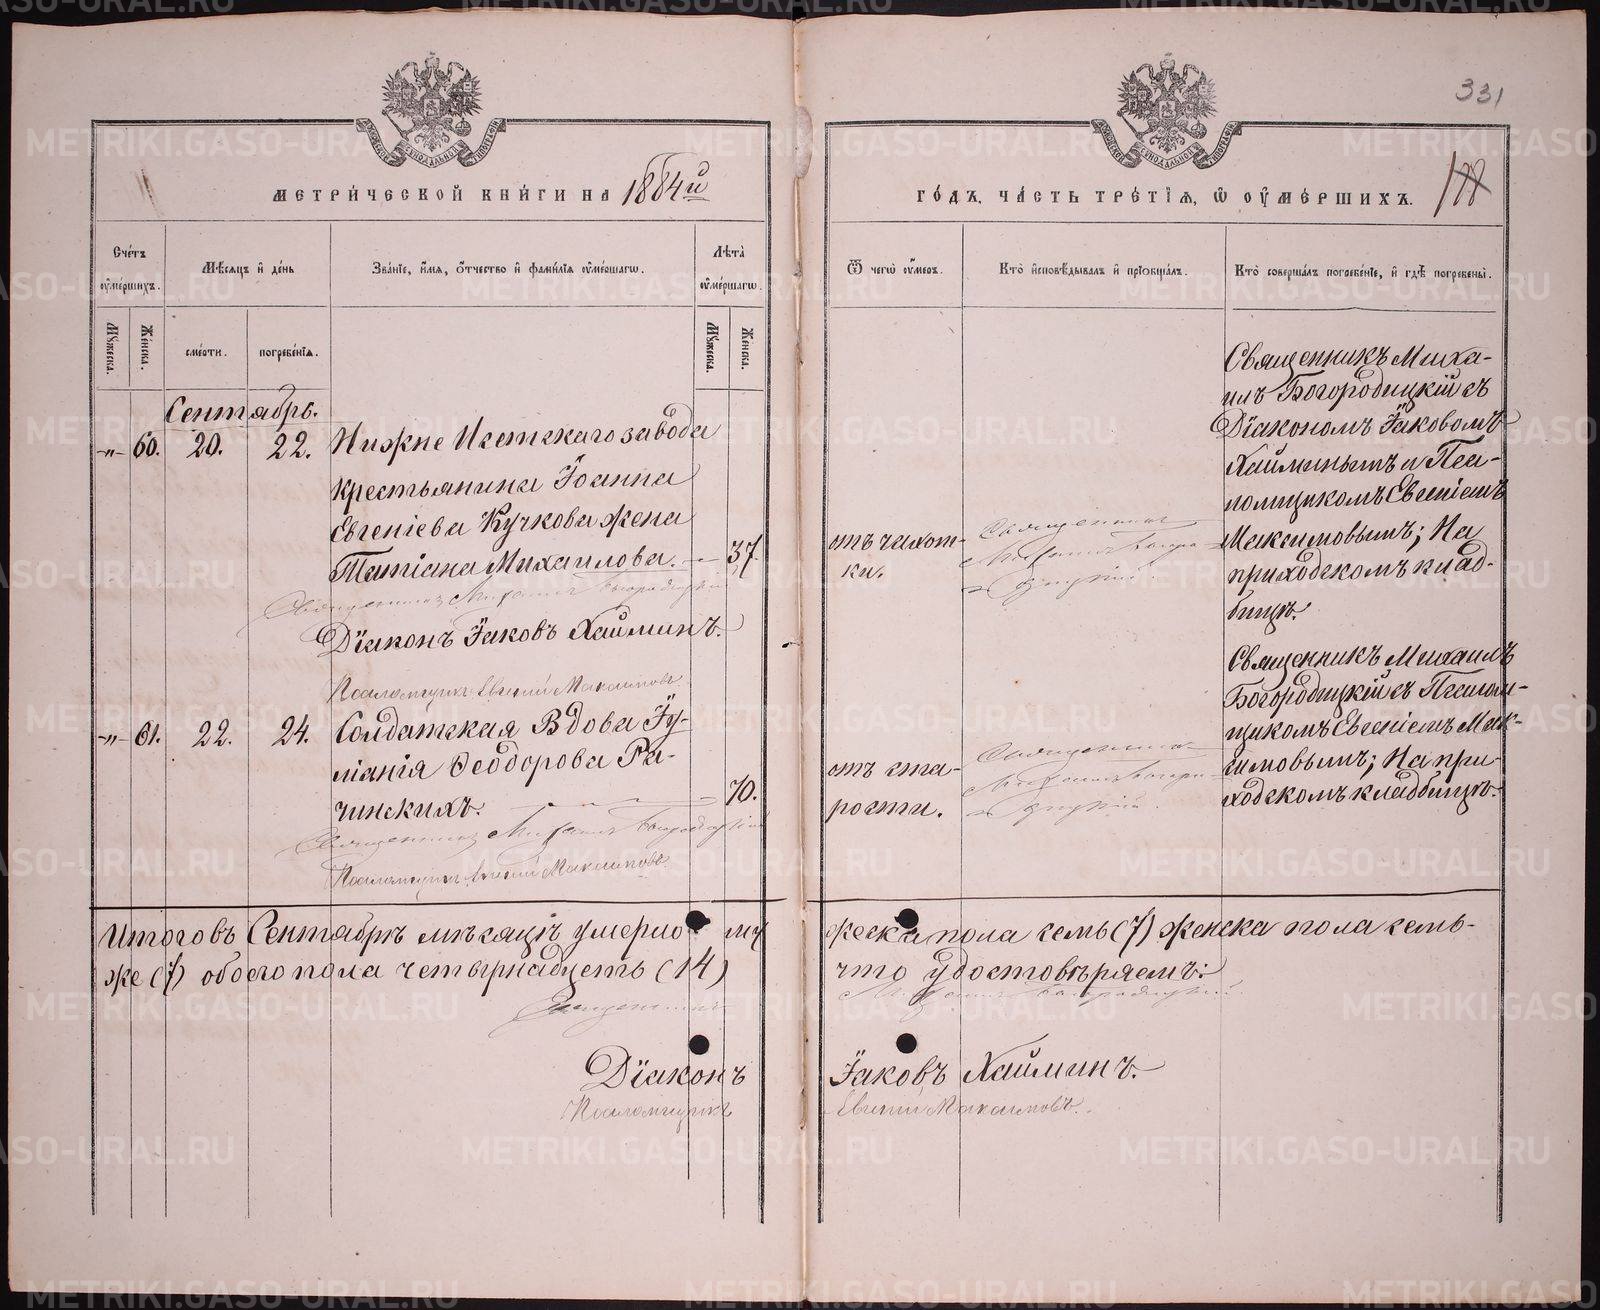 331
МЕТРИ́ЧЕСКОЙ КНИ́ГИ НА 1884й
ГО́ДЪ, ЧА́СТЬ ТРЕ́ТІѦ, Ѿ ОУМЕ́РШИХЪ.
Сче́тъ оуме́ршихъ.
Мѣ́сяцъ и де́нь
Зва́ніе, и́мя, о́тчество и фами́лія оуме́ршагѡ.
Лѣта̀ оуме́ршагѡ.
Ѿ чегѡ̀ оу́меръ.
Кто̀ исповѣ́дывалъ и пріобща́лъ.
Кто̀ соверша́лъ погребе́ніе, и гдѣ̀ погребены̀.
Мꙋ́жеска.
Же́нска.
сме́рти.
погребе́нія.
Мꙋ́жеска.
Же́нска.
Сентябрь.
-„- 60. 20. 22. Нижне Исетскаго завода
крестьянина Іоанна
Евгеніева Кучкова жена
Татіана Михаилова. 37.
Священникъ Михаилъ Богородицкій
Діаконъ Іаковъ Хайминъ.
Псаломщикъ Евгеній Максимовъ
отъ чахот-
ки.
Священникъ
Михаилъ Богоро-
дицкій.
Священникъ Миха-
илъ Богородицкій съ
Діакономъ Іаковомъ
Хайминымъ и Пса-
ломщикомъ Евгеніемъ
Максимовымъ; На
приходскомъ клад-
бищѣ.
-„- 61. 22. 24. Солдатская Вдова Іу-
ліанія Ѳеодорова Ра-
чинскихъ. 70.
Священникъ Михаилъ Богородицкій
Псаломщикъ Евгеній Максимовъ
отъ ста-
рости.
Священникъ
Михаилъ Богоро-
дицкій.
Священникъ Михаилъ
Богородицкій съ Псалом-
щикомъ Евгеніемъ Мак-
симовымъ; На при-
ходскомъ кладбищѣ.
Итого въ Сентябрѣ мѣсяцѣ умерло му
жеска пола семь (7) женска пола семь-
же (7) обоего пола четырнадцеть (14)
что удостовѣряемъ:
Священникъ Михаилъ Богородицкій.
Діаконъ Іаковъ Хайминъ.
Псаломщикъ Евгеній Максимовъ.
METRIKI.GASO-URAL.RU